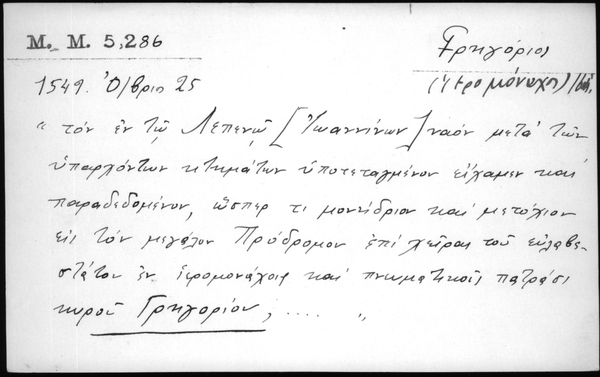 M. M. 5,286
Γρηγόριος
(ἱερομόναχος)
1549. Ὀ/βριο 25
" τόν ἐν τῷ Λεπενῷ [Ἰωαννίνων] ναόν μετά τῶν
ὑπαρχόντων κτημάτων ὑποτεταγμένον εἴχαμεν καί
παραδεδομένον, ὥσπερ τι μονύδριον καί μετόχιον
εἰς τόν μεγάλον Πρόδρομον ἐπί χεῖρας τοῦ εὐλαβε-
στάτου ἐν ἱερομονάχοις καί πνευματικοῖς πατράσι
κυροῦ Γρηγορίου, ..... "